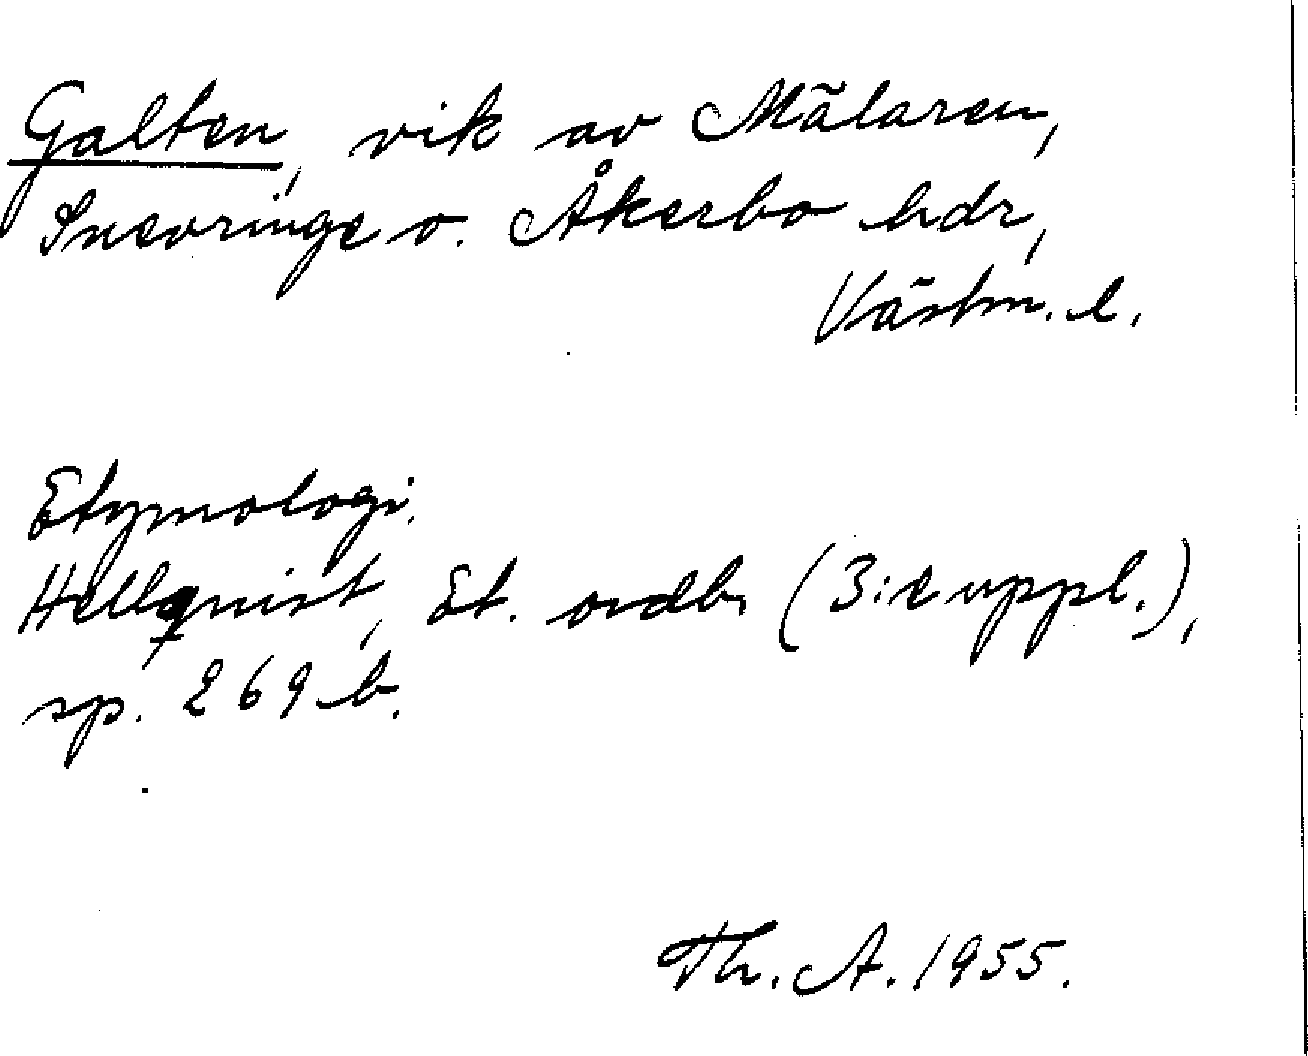 Galten, vik av Mälaren,
Snevringe o. Åkerbo hdr,
Västm. l.
Etymologi.
Hellquist, Et. ordb. (3:e uppl.),
sp. 269 b.
Th. A. 1955.